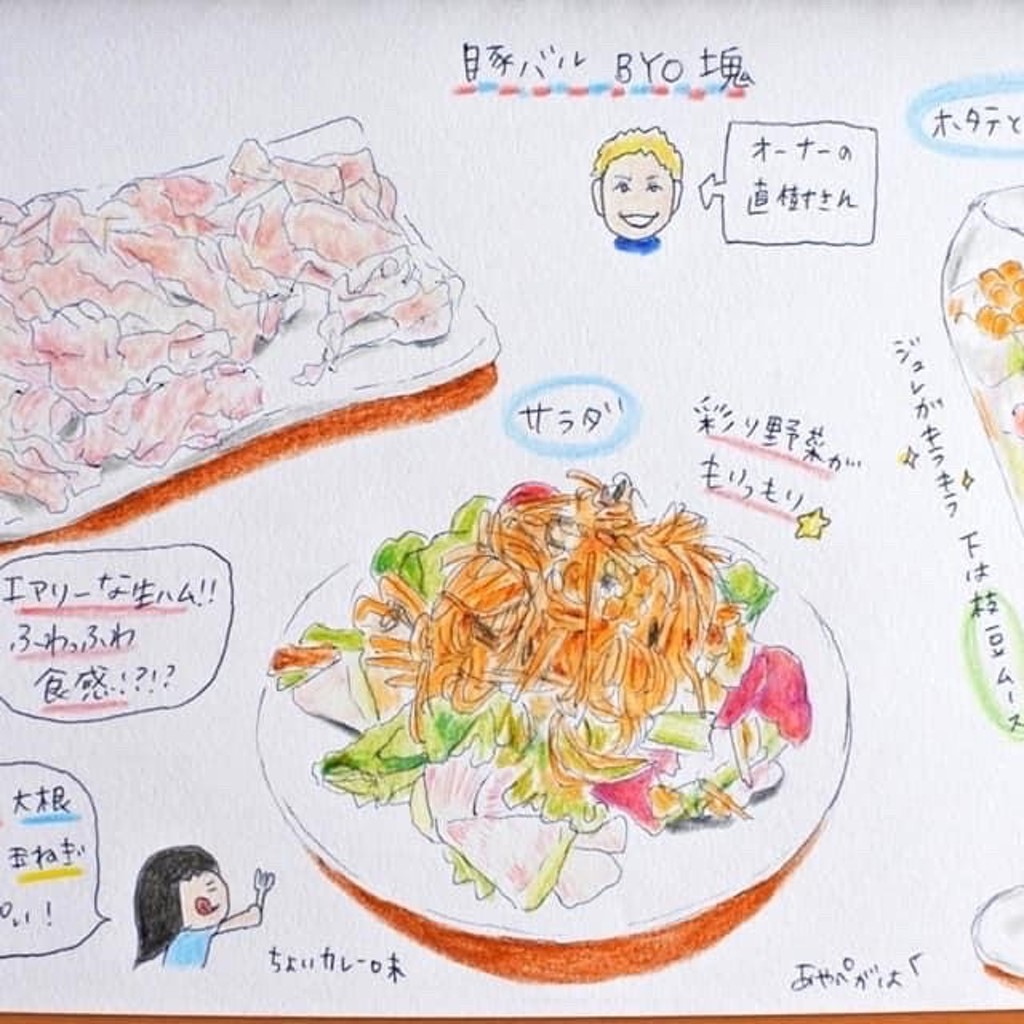 豚バル BYO 塊
オーナーの
直樹さん
ホタテと
ジュレがキラキラ
下は枝豆ムース
サラダ
彩り野菜が
もりっもり
エアリーな生ハム!!
ふわっふわ
食感!?!?
大根
玉ねぎ
い!
ちょいカレー味